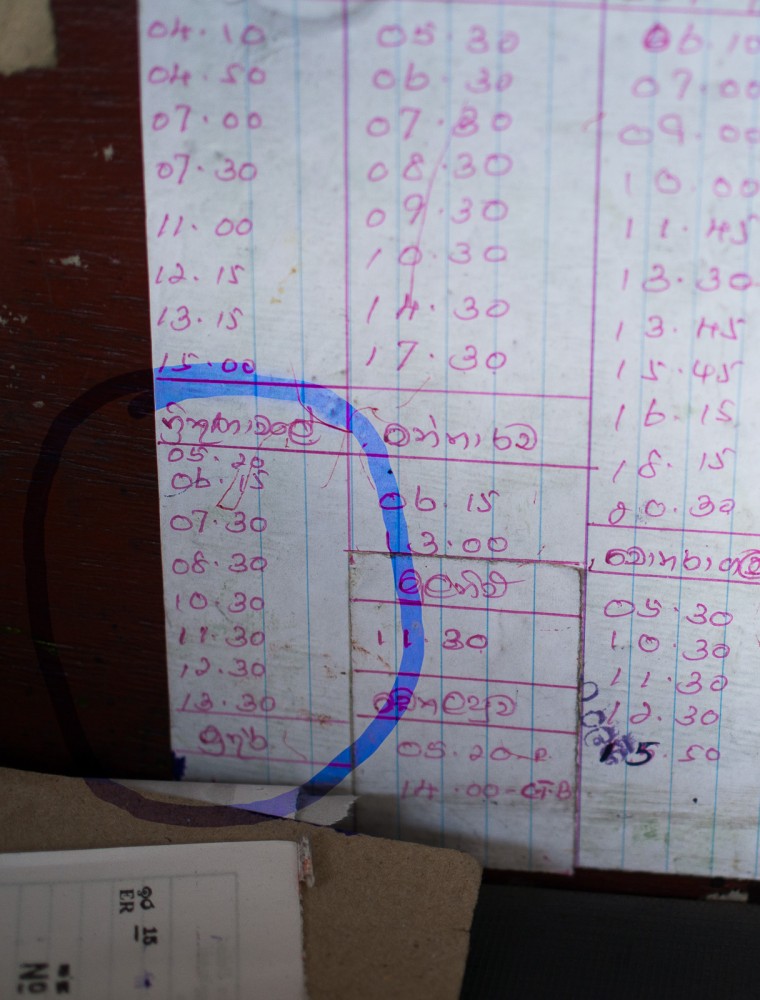 04.10
04.50
07.00
07.30
11.00
12.15
13.15
15.00
ත්‍රිකුණාමලේ
05.20
06.15
07.30
08.30
10.30
11.30
12.30
13.30
05.30
06.30
07.30
08.30
09.30
10.30
14.30
17.30
මන්නාරම
06.15
13.00
මුලතිව්
11.30
මඩකලපුව
05.20-P
14.00-CTB
06.10
07.00
09.00
10.00
11.45
13.30
13.45
15.45
16.15
18.15
20.30
මොනරාගල
05.30
10.30
11.30
12.30
15.50
ER 15
No